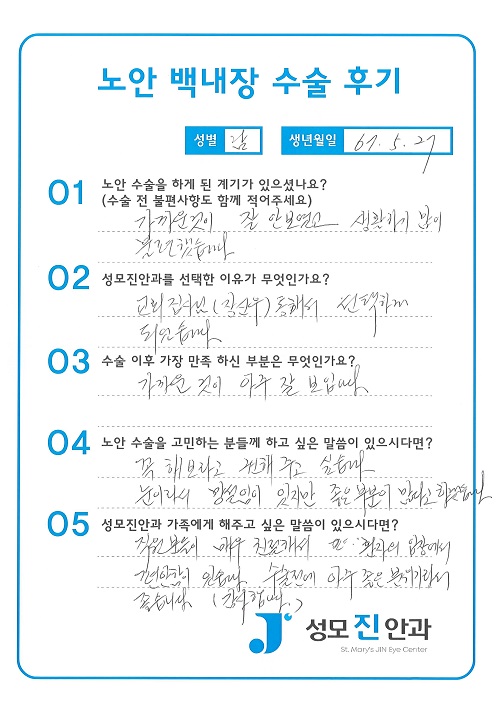 노안 백내장 수술 후기
성별 남 생년월일 67. 5. 27
01 노안 수술을 하게 된 계기가 있으셨나요?
(수술 전 불편사항도 함께 적어주세요)
가까운것이 잘 안보였고 생활하기 많이
불편했습니다
02 성모진안과를 선택한 이유가 무엇인가요?
교회 집사님 통해서 선택하게
되었습니다.
03 수술 이후 가장 만족 하신 부분은 무엇인가요?
가까운 것이 아주 잘 보입니다.
04 노안 수술을 고민하는 분들께 하고 싶은 말씀이 있으시다면?
꼭 해보라고 권해 주고 싶습니다.
눈이라서 망설임이 있지만 좋은 부분이 많다고
05 성모진안과 가족에게 해주고 싶은 말씀이 있으시다면?
직원분들이 매우 친절해서 환자의 입장에서
편안함이 있습니다. 수술전에 아주 좋은 분위기라서
좋습니다. (감사합니다.)
성모 진 안과
St. Mary's JIN Eye Center